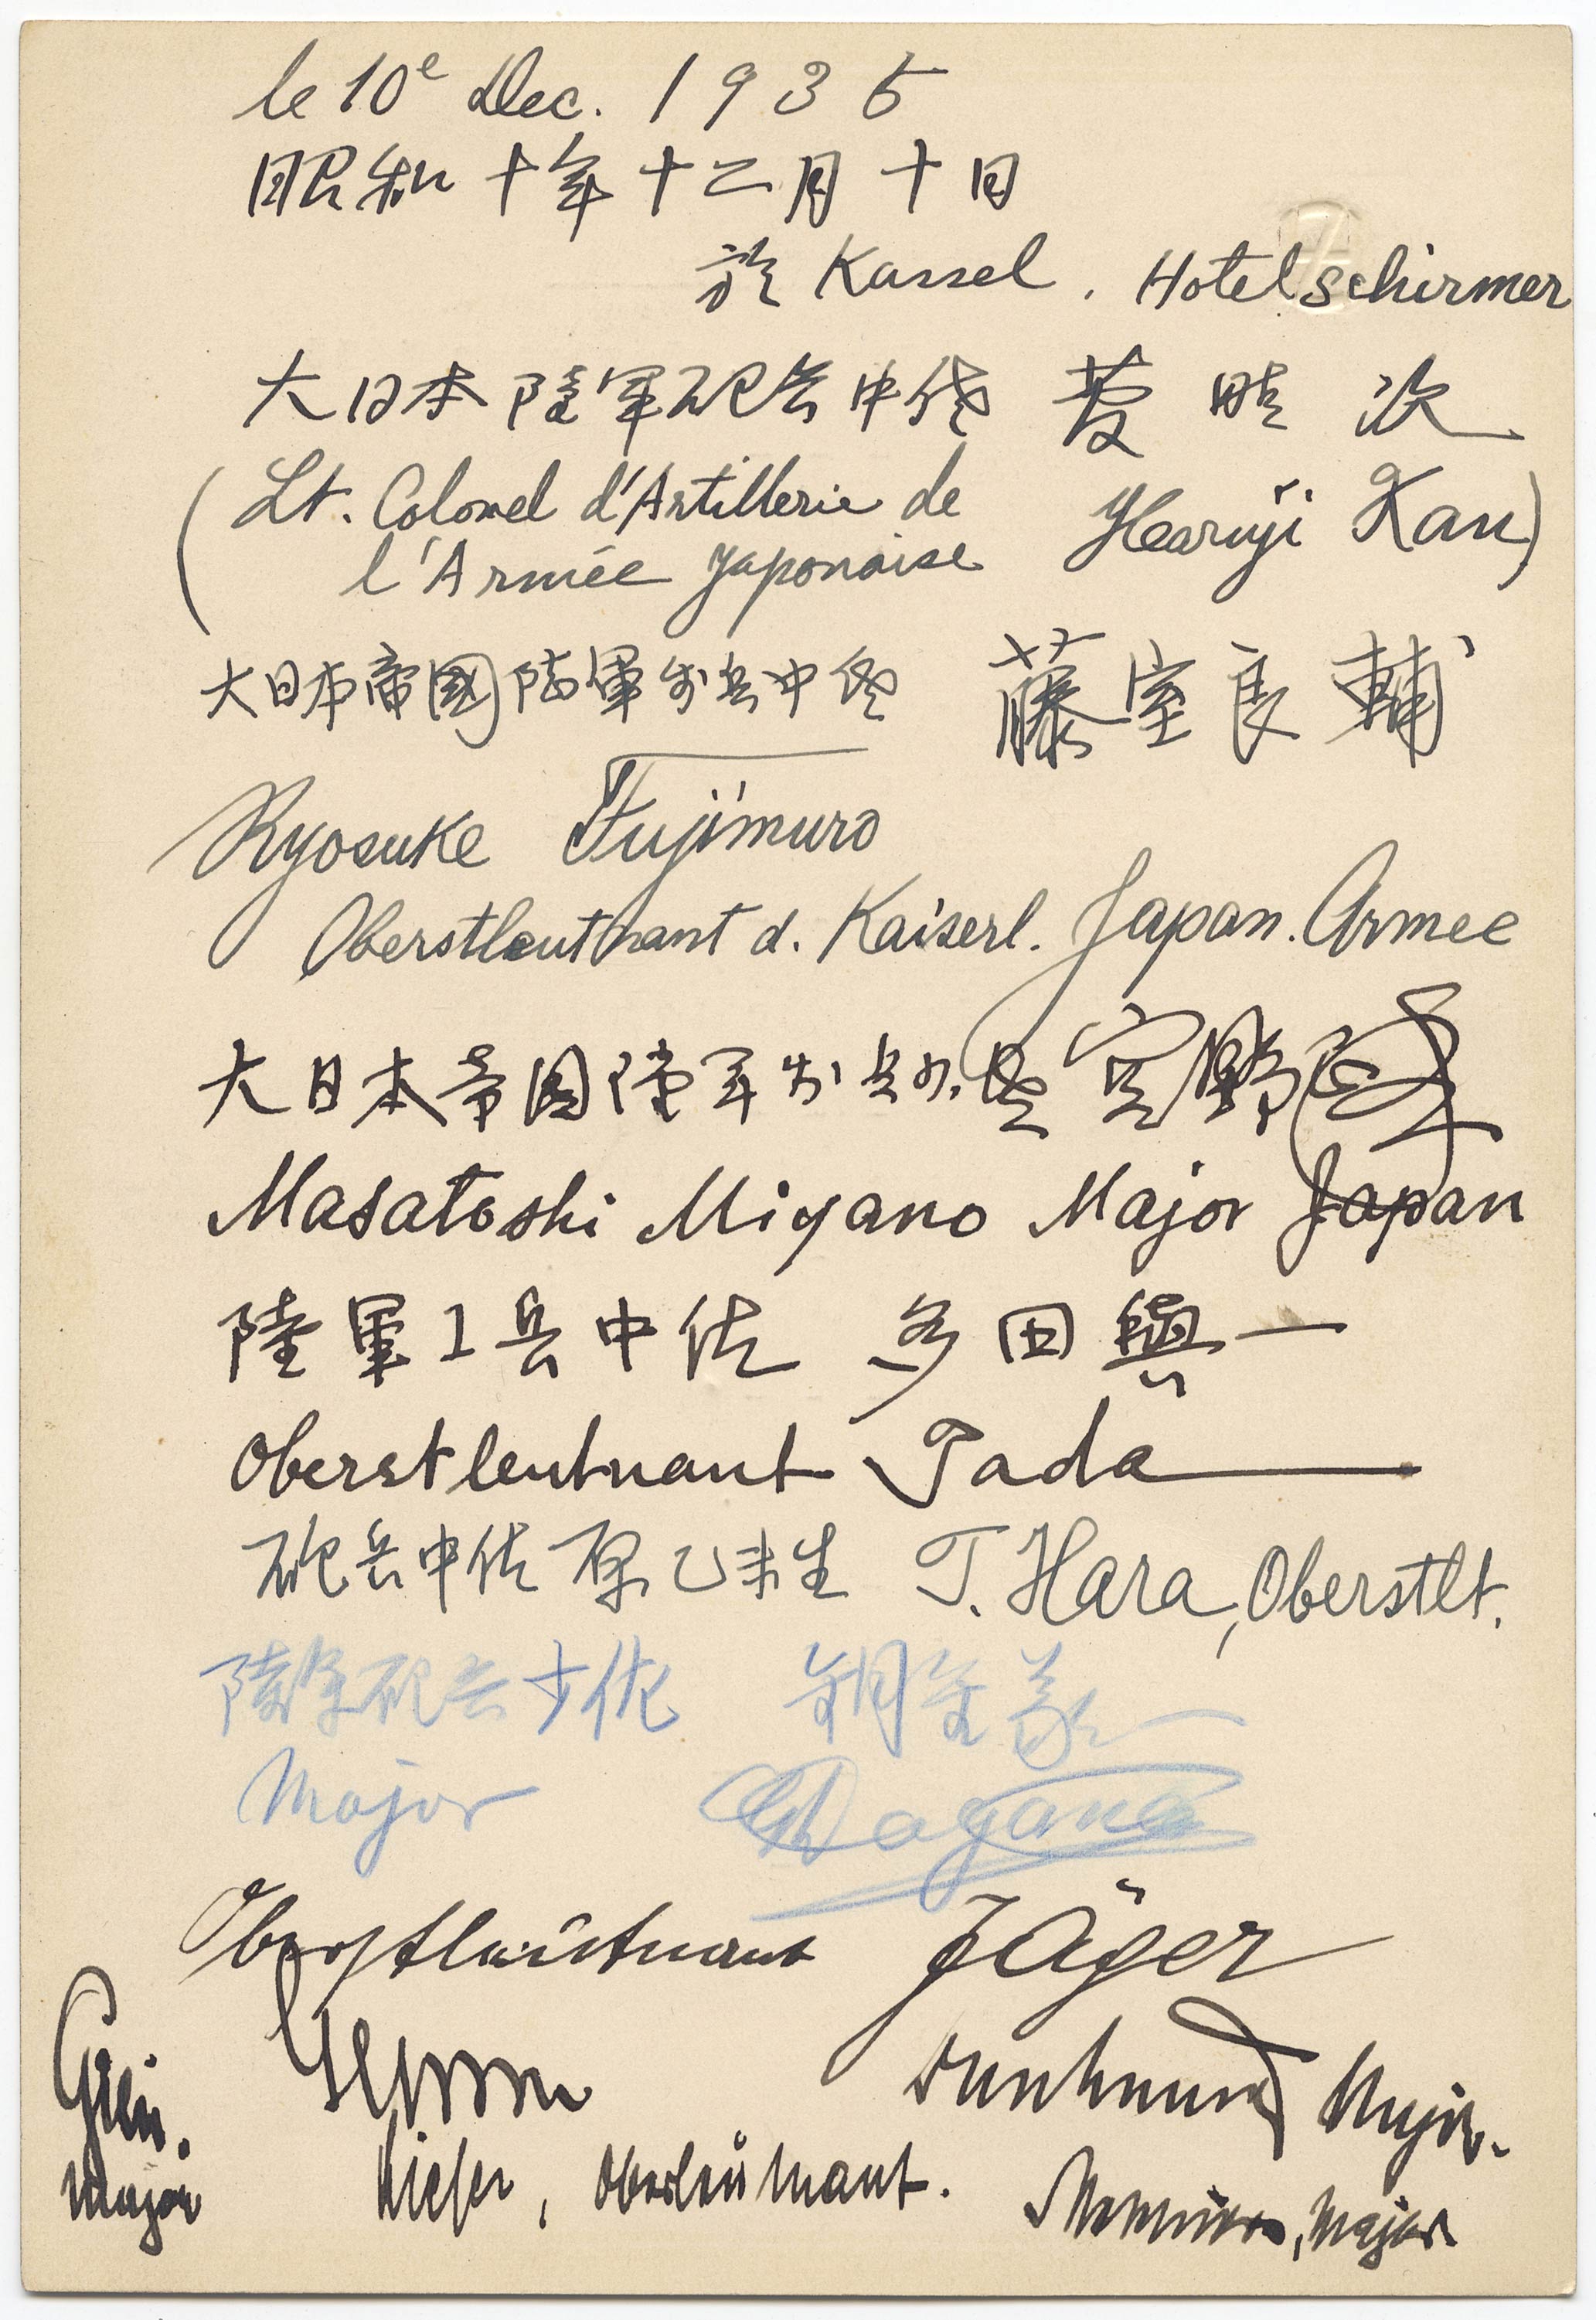 le 10e Dec. 1935
昭和十年十二月十日
於 Kassel. Hotel Schirmer
大日本陸軍砲兵中佐 菅 晴 次
(Lt. Colonel d'Artillerie de Haruji Kan)
l'Armée Japonaise
大日本帝國陸軍歩兵中佐 藤室良輔
Ryosuke Fujimuro
Oberstleutnant d. Kaiserl. Japan. Armee
大日本帝国陸軍歩兵少佐 宮野
Masatoshi Miyano Major Japan
陸軍工兵中佐 多田與一
Oberstleutnant Tada
砲兵中佐 原乙未生 T. Hara, Oberstlt.
陸軍砲兵少佐
Major
Oberstleutnant Jäger
Major.
Major
, Oberleutnant.
, Major.